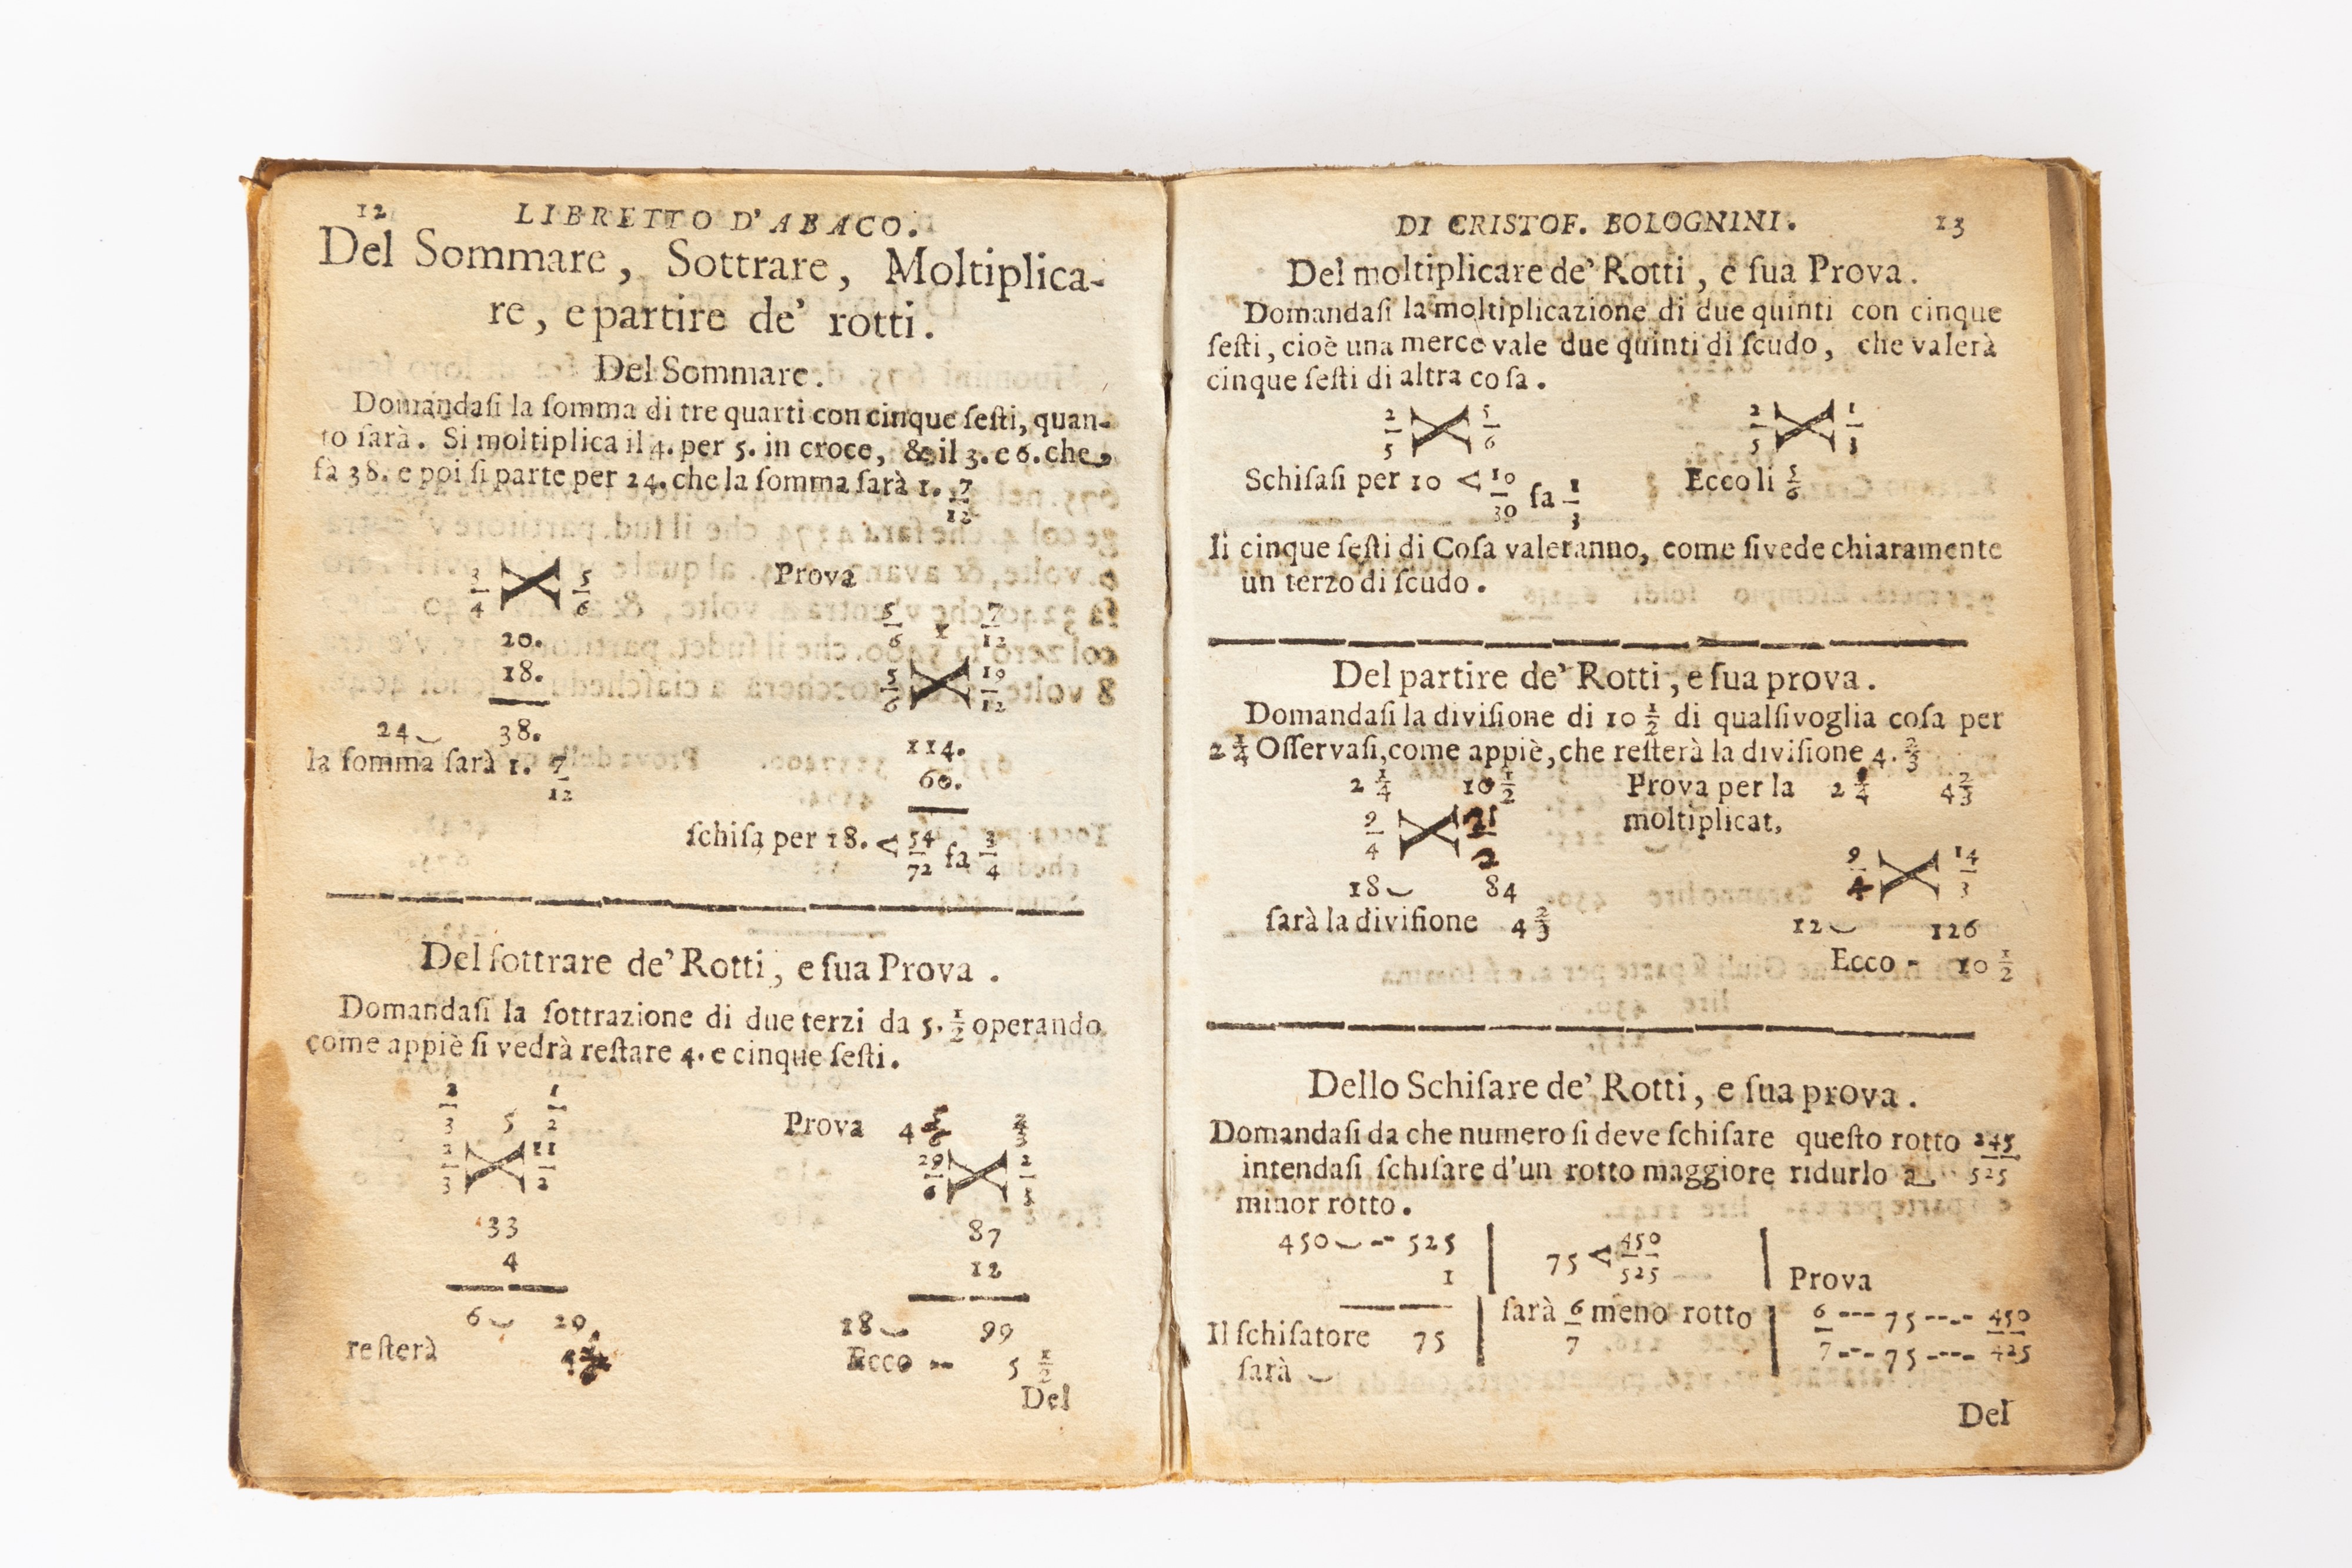 12 LIBRETTO D'ABACO.
Del Sommare, Sottrare, Moltiplica-
re, e partire de' rotti.
Del Sommare.
Domandaſi la ſomma di tre quarti con cinque ſeſti, quan-
to ſarà. Si moltiplica il 4. per 5. in croce, & il 3. e 6. che
fà 38. e poi ſi parte per 24. che la ſomma ſarà 1. 7/12
3/4 5/6 Prova
5/6 1 7/12
20.
18. 5/6 19/12
24 38. 114.
la ſomma ſarà 1. 7/12 60.
ſchiſa per 18. < 54/72 fa 3/4
Del ſottrare de' Rotti, e ſua Prova.
Domandaſi la ſottrazione di due terzi da 5. 1/2 operando
come appiè ſi vedrà reſtare 4. e cinque ſeſti.
2/3 5 1/2 Prova 4 5/6 2/3
2/3 11/2 29/6 2/3
33 87
4 12
6 29 18 99
reſterà Ecco -- 5 1/2
Del
DI CRISTOF. BOLOGNINI. 13
Del moltiplicare de' Rotti, e ſua Prova.
Domandaſi la moltiplicazione di due quinti con cinque
ſeſti, cioè una merce vale due quinti di ſcudo, che valerà
cinque ſeſti di altra coſa.
2/5 5/6 2/5 1/3
Schiſaſi per 10 < 10/30 fa 1/3 Ecco li 5/6
li cinque ſeſti di Coſa valeranno, come ſi vede chiaramente
un terzo di ſcudo.
Del partire de' Rotti, e ſua prova.
Domandaſi la diviſione di 10 1/2 di qualſivoglia coſa per
2 1/4 Oſſervaſi, come appiè, che reſterà la diviſione 4. 2/3
2 1/4 10 1/2 Prova per la 2 1/4 4 2/3
9/4 21/2 moltiplicat,
9/4 14/3
18 84
ſarà la diviſione 4 2/3 12 126
Ecco - 10 1/2
Dello Schiſare de' Rotti, e ſua prova.
Domandaſi da che numero ſi deve ſchiſare queſto rotto 245/525
intendaſi ſchiſare d'un rotto maggiore ridurlo a
minor rotto.
450 -- 525 75 < 450/525
1 Prova
ſarà 6/7 meno rotto 6 --- 75 ---- 450
Il ſchiſatore 75 7 --- 75 ---- 425
ſarà
Del